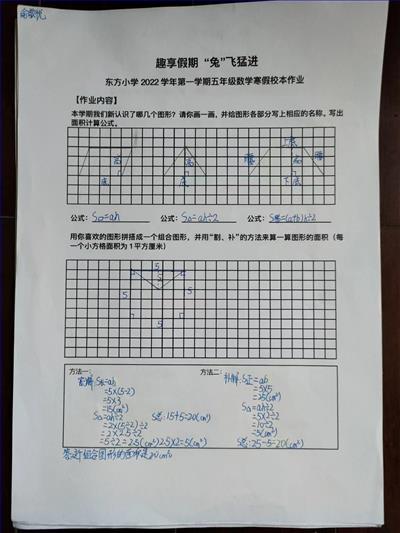 趣享假期 “兔”飞猛进
东方小学 2022 学年第一学期五年级数学寒假校本作业
【作业内容】
本学期我们新认识了哪几个图形？请你画一画，并给图形各部分写上相应的名称。写出
面积计算公式。
上底
高 高 腰 高 腰
底 底 下底
公式：S▱=ah 公式：S△=ah÷2 公式：S梯=(a+b)h÷2
用你喜欢的图形拼搭成一个组合图形，并用“割、补”的方法来算一算图形的面积（每
一个小方格面积为 1 平方厘米）
5
5
5 5
5
方法一： 方法二：
=5×(5-2)
=5×3
=15(cm²)
S△=ah÷2 S总:15+5=20(cm²)
=2×(5÷2)÷2
=2×2.5÷2
=5÷2=2.5(cm²) 2.5×2=5(cm²)
补解:S正=ab
=5×5
=25(cm²)
S△=ah÷2
=5×2÷2
=10÷2
=5(cm²)
S总:25-5=20(cm²)
组合图形的面积是20cm²